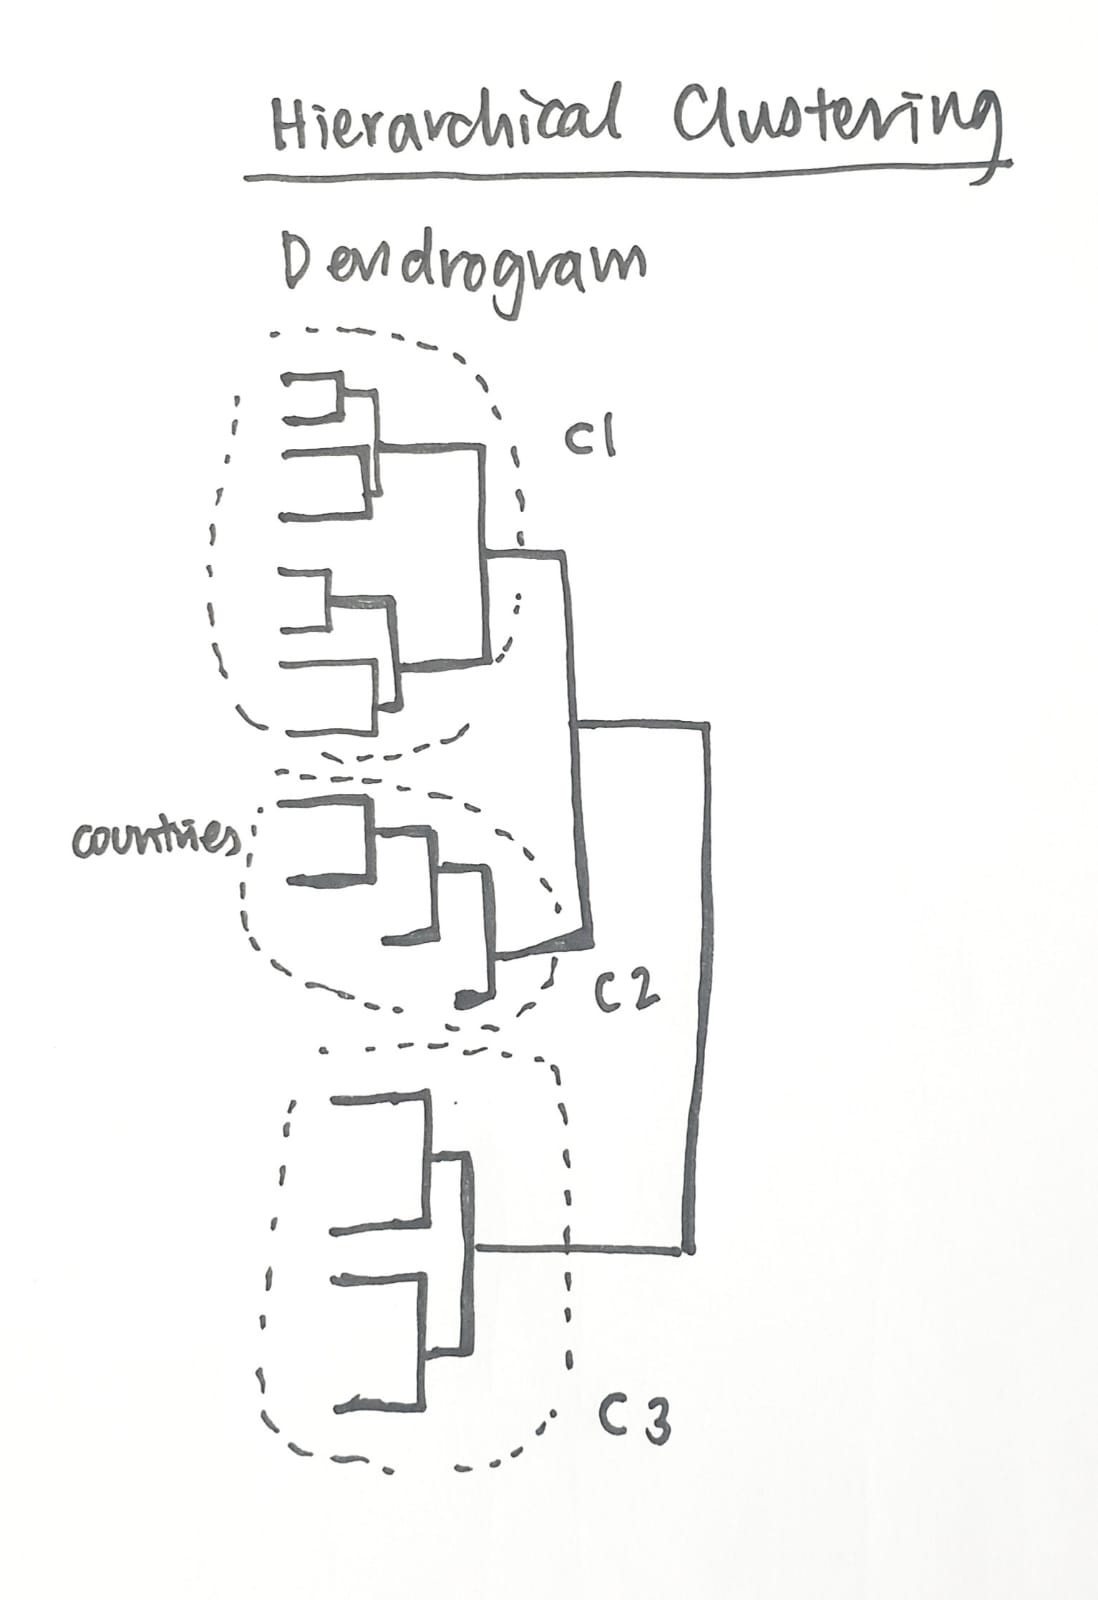 Hierarchical Clustering
Dendrogram
C1
countries
C2
C3